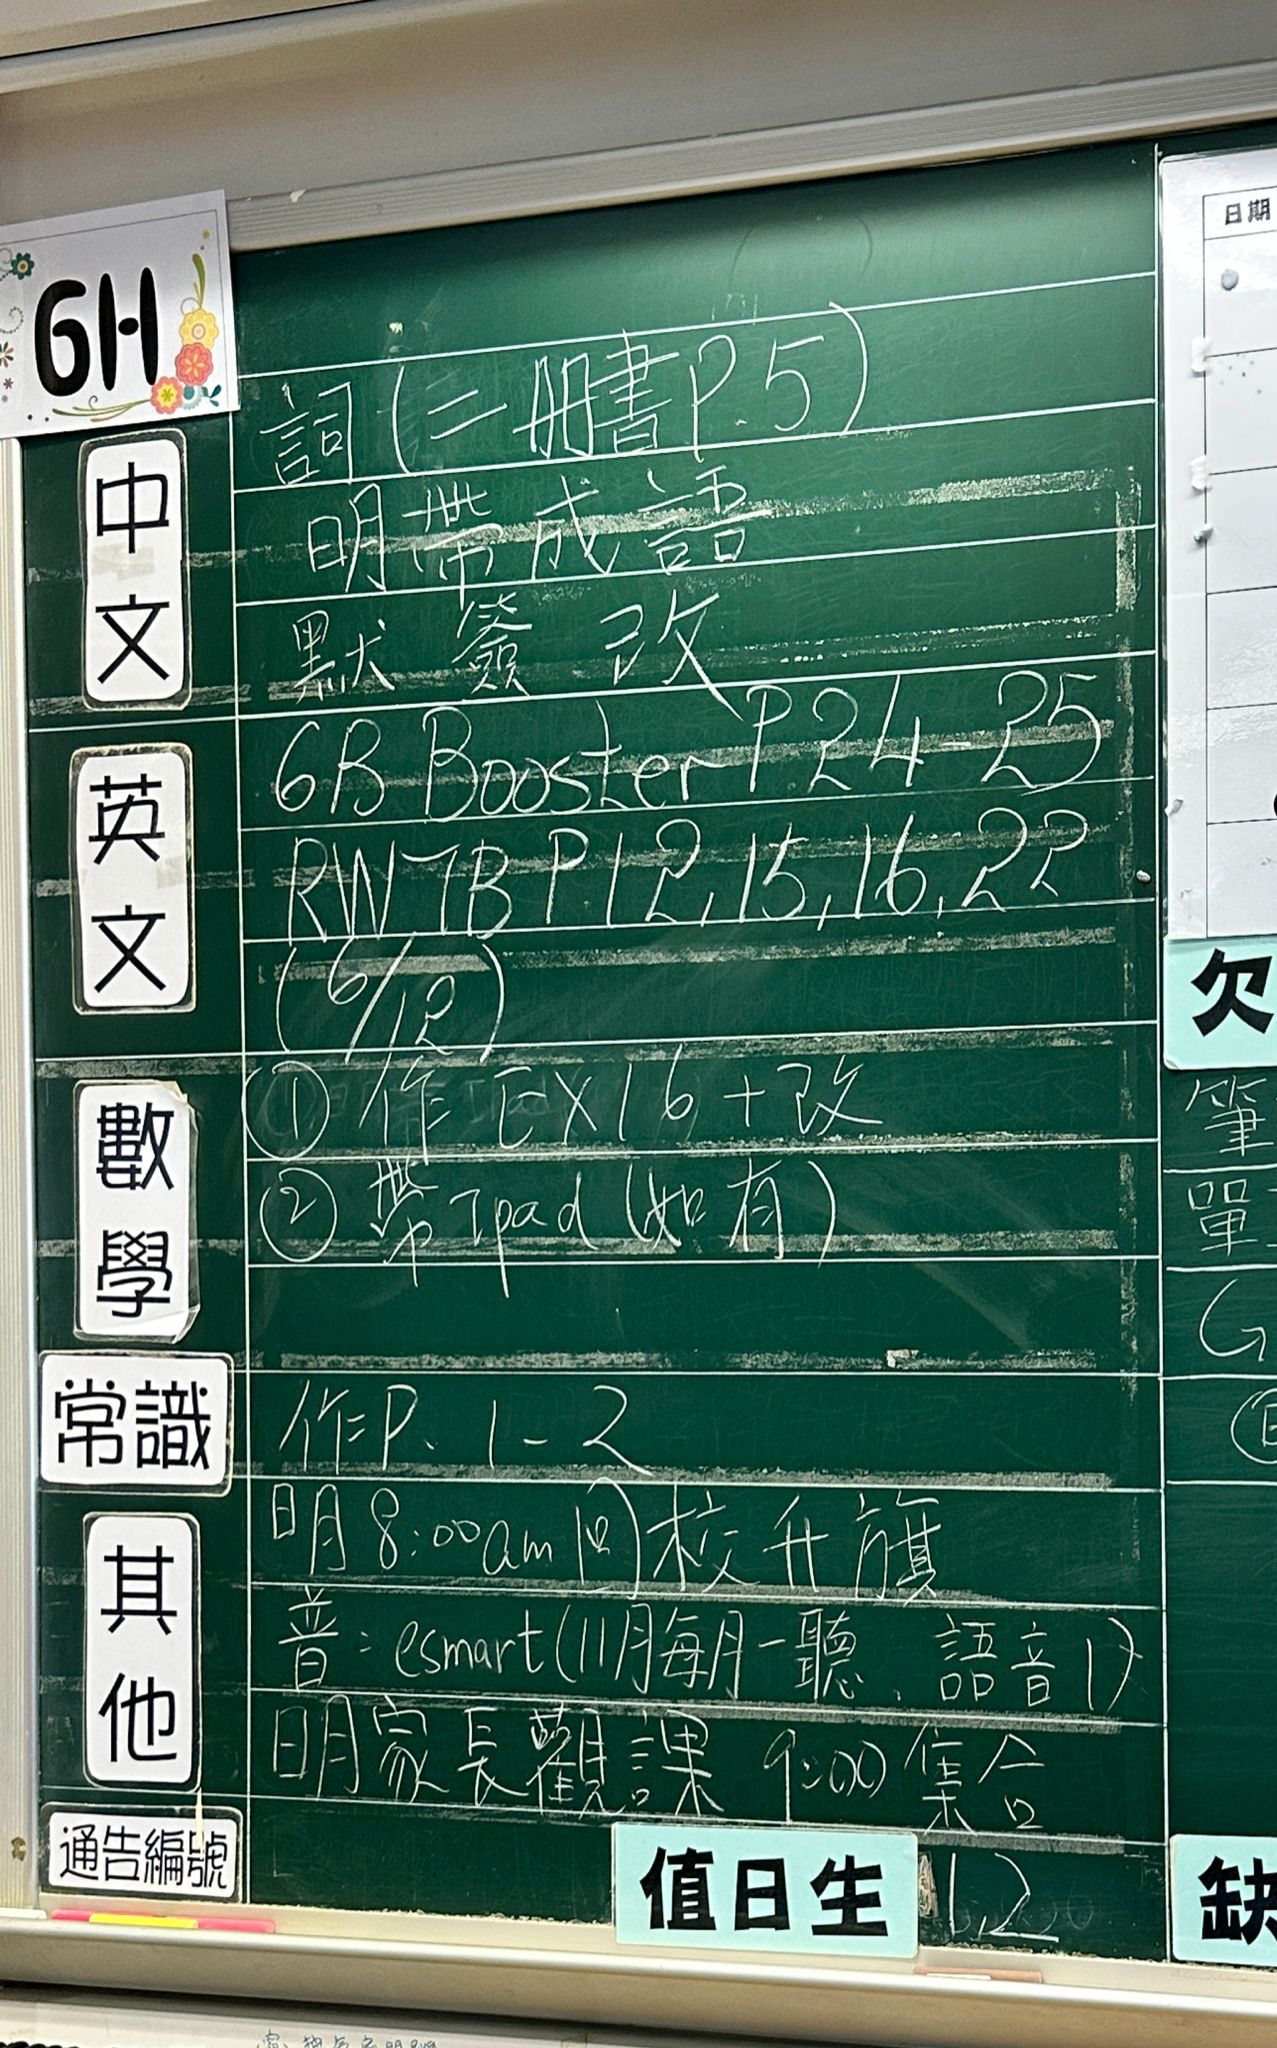 6H
日期
中文
詞(二冊書P.5)
明帶成語
默 簽 改
英文
6B Booster P24-25
RWTB P12,15,16,22
(6/12)
數學
① 作EX16+改
② 帶Ipad(如有)
常識
作P. 1-2
其他
明8:00am回校升旗
音: esmart(11月每月一聽、語音1)
明家長觀課 9:00集合
通告編號
值日生
1,2
欠
筆
單
G
缺